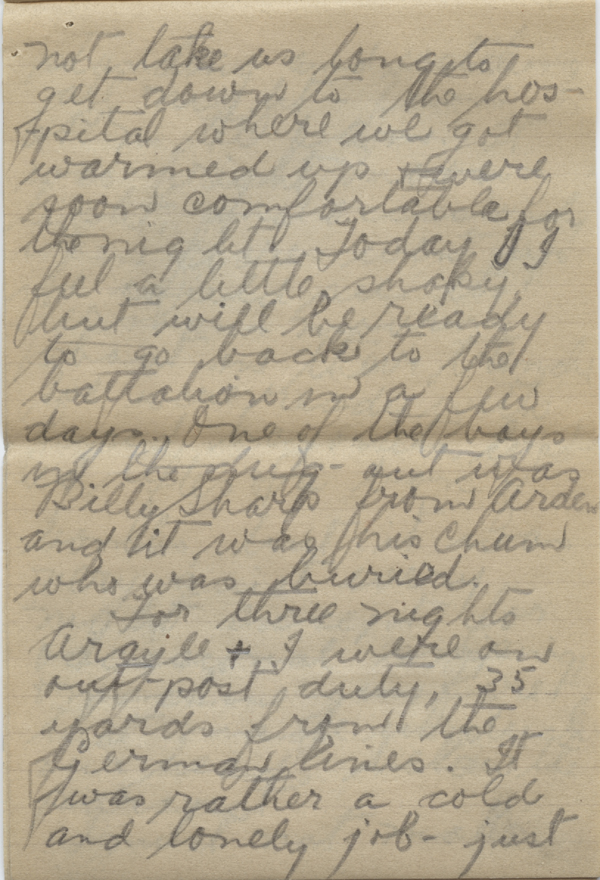 not take us long to
get down to the hos-
pital where we got
warmed up + were
soon comfortable for
the night. Today I
feel a little shaky
but will be ready
to go back to the
battalion in a few
days. One of the boys
in the dug-out was
Billy Sharp from Arden
and it was his chum
who was buried.
For three nights
Argyle + I were on
out-post duty, 35
yards from the
German lines. It
was rather a cold
and lonely job - just